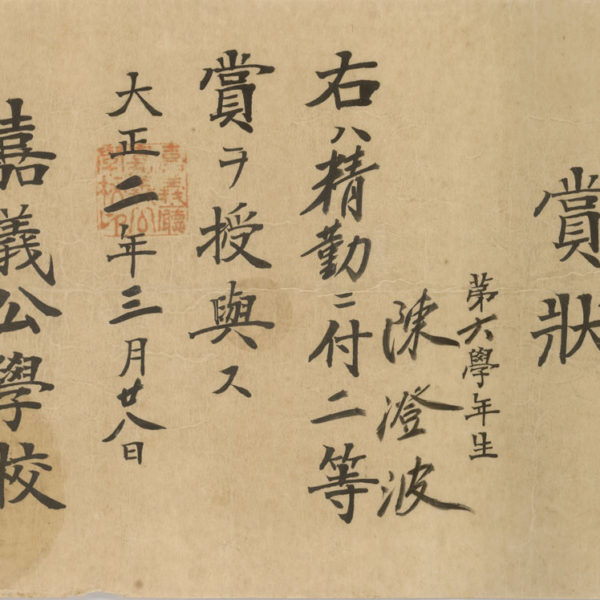 賞狀
第六學年生
陳澄波
右ハ精勤ニ付二等
賞ヲ授與ス
大正二年三月廿八日
嘉義公學校